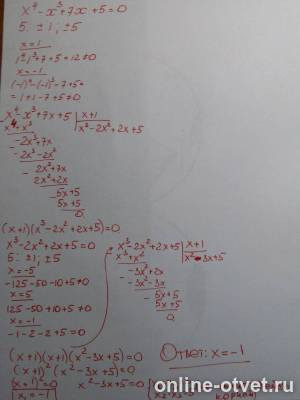 x⁴-x³+7x+5=0
5: ±1; ±5
x=1
1⁴-1³+7+5=12≠0
x=-1
(-1)⁴-(-1)³-7+5=
=1+1-7+5=0
x⁴-x³+7x+5 | x+1
x⁴+x³ | x³-2x²+2x+5
-2x³+7x
-2x³-2x²
2x²+7x
2x²+2x
5x+5
5x+5
0
(x+1)(x³-2x²+2x+5)=0
x³-2x²+2x+5=0
5: ±1; ±5
x=-5
-125-50-10+5≠0
x=5
125-50+10+5≠0
x=-1
-1-2-2+5=0
x³-2x²+2x+5 | x+1
x³+x² | x²-3x+5
-3x²+2x
-3x²-3x
5x+5
5x+5
0
(x+1)(x+1)(x²-3x+5)=0
(x+1)²(x²-3x+5)=0
Ответ: x=-1
(x+1)²=0
x²-3x+5=0
x₁=-1
online-otvet.ru